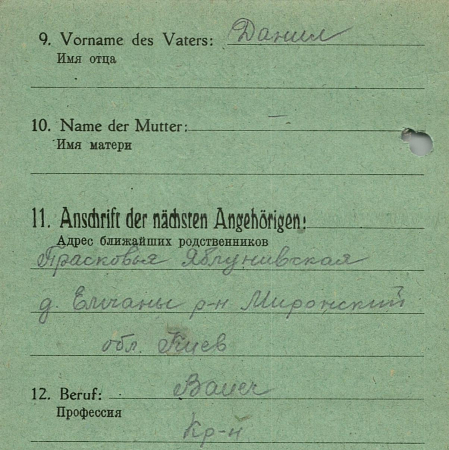 9. Vorname des Vaters: Данил
Имя отца
10. Name der Mutter:
Имя матери
11. Anschrift der nächsten Angehörigen:
Адрес ближайших родственников
Прасковья Яблунивская
д. Емчаны р-н Миронский
обл. Киев
12. Beruf: Bauer
Профессия
Кр-н